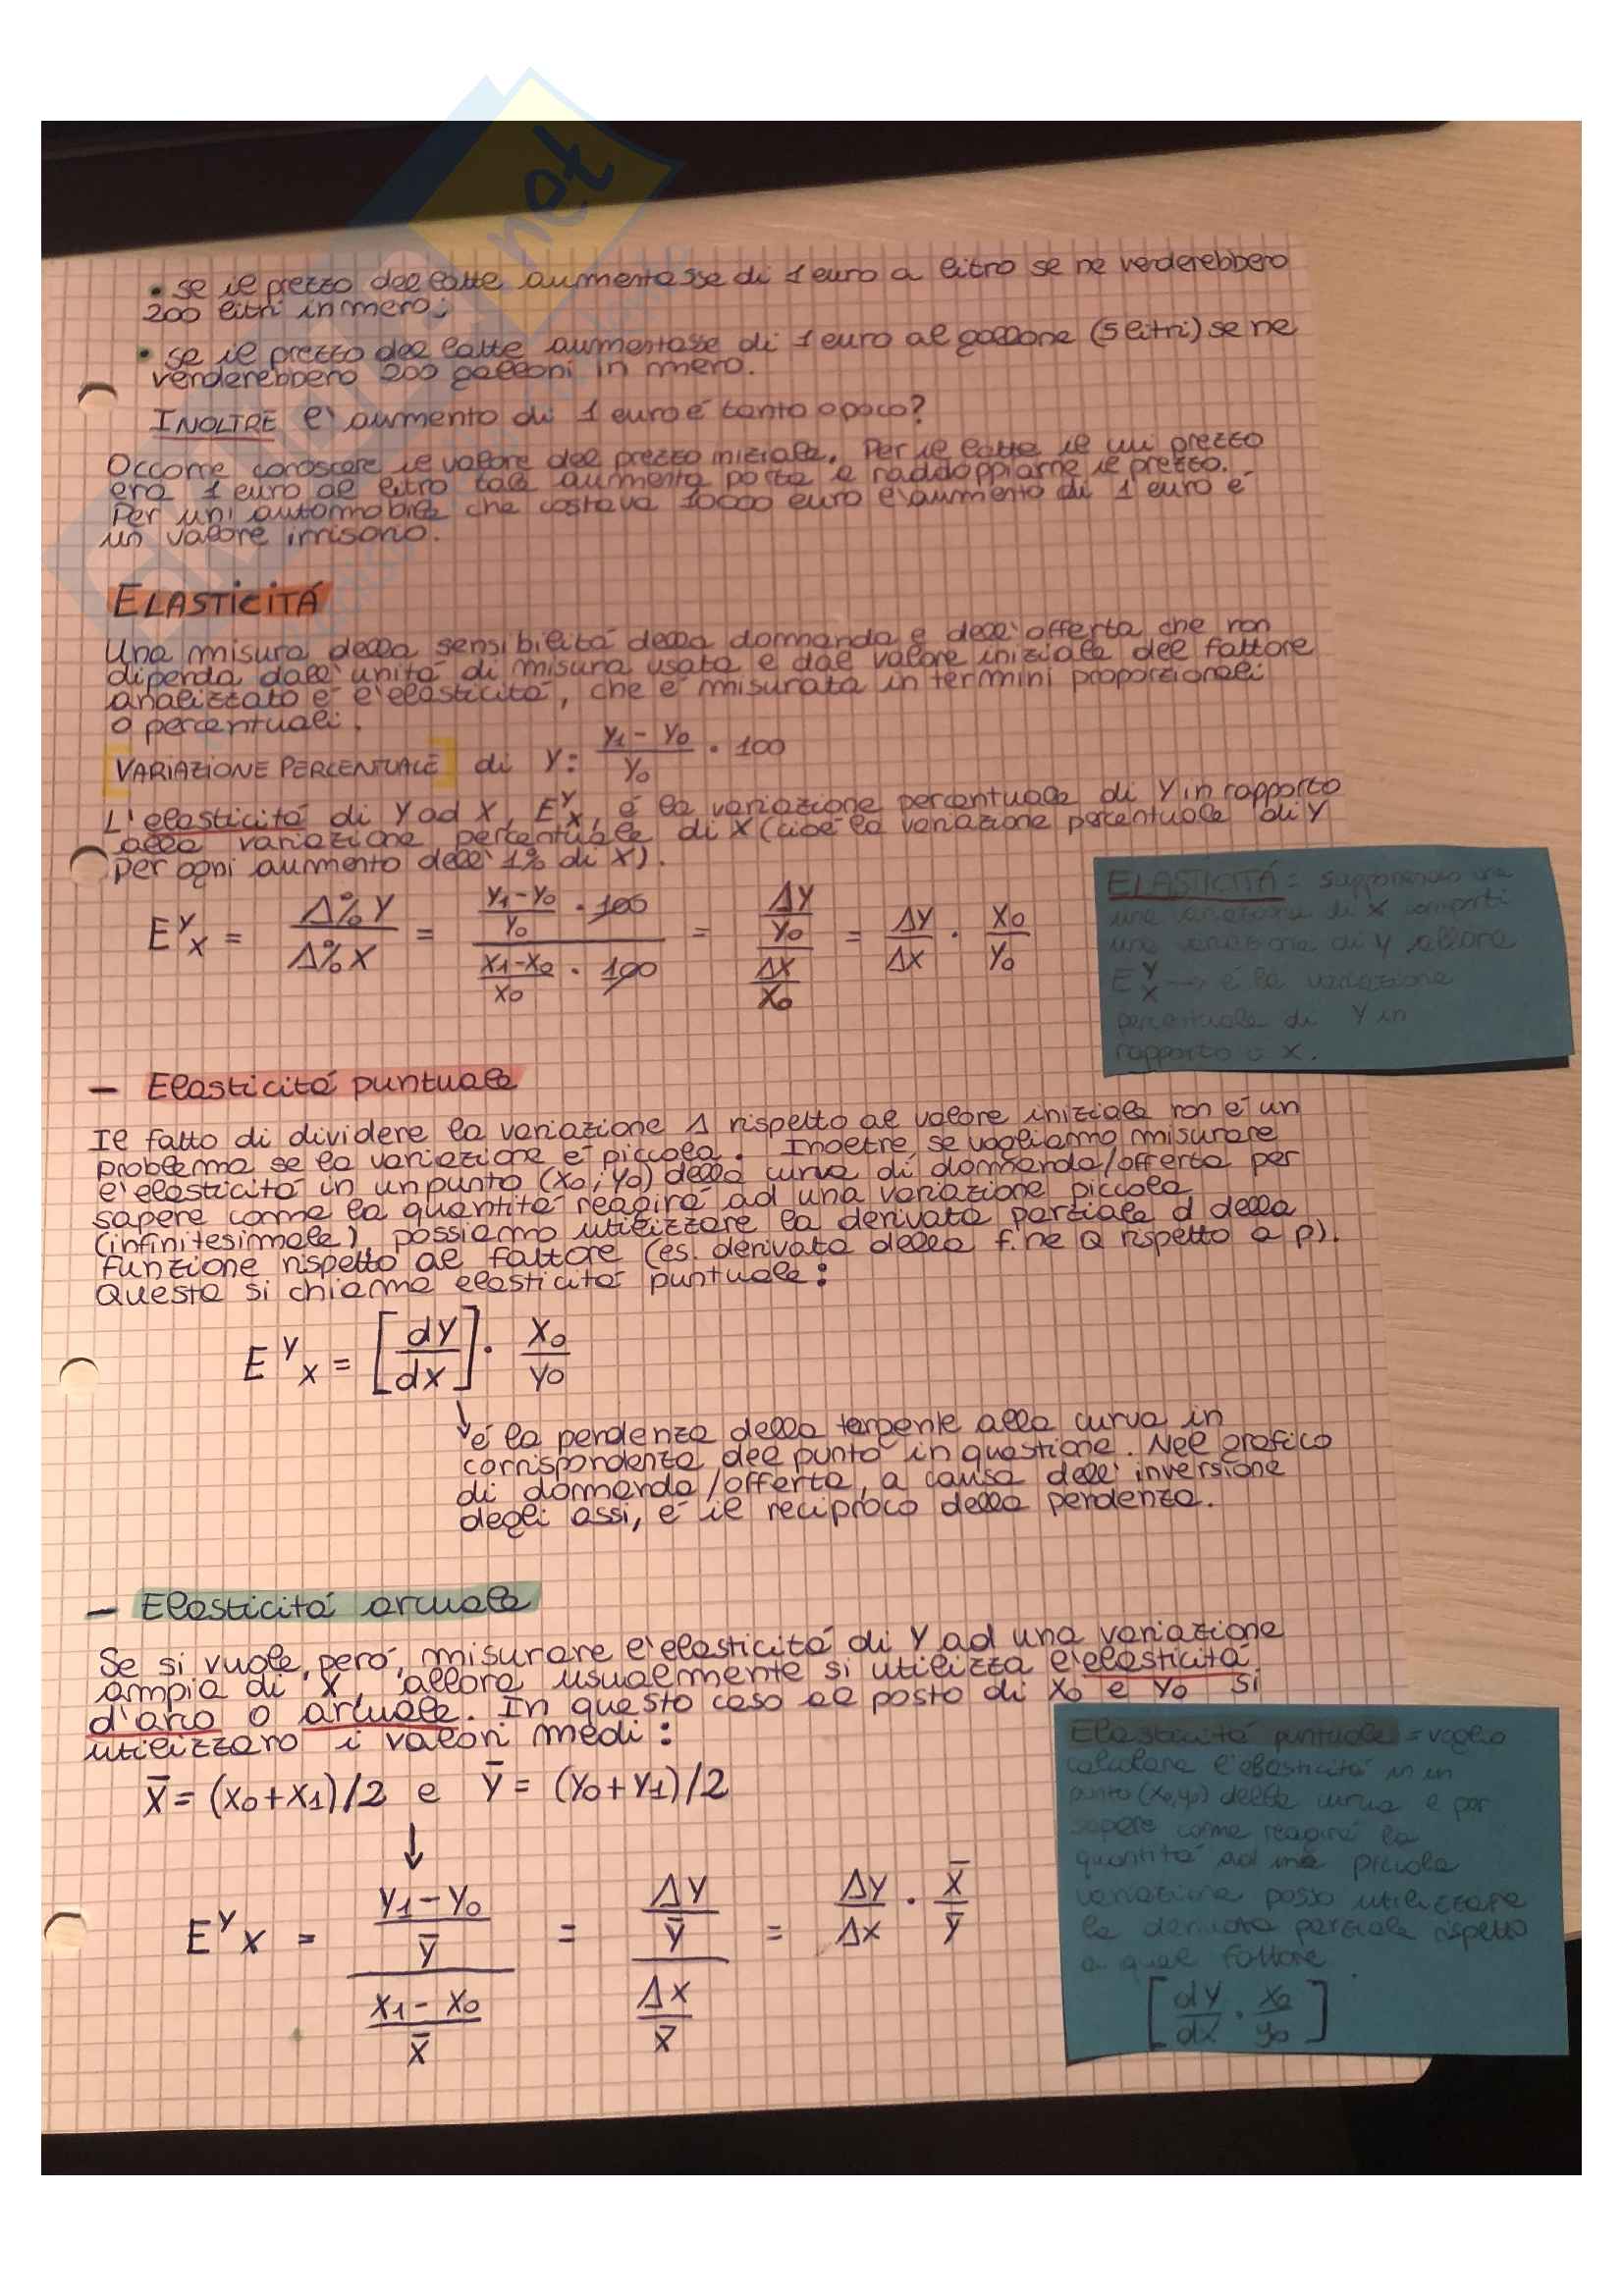 • se il prezzo del latte aumentasse di 1 euro a litro se ne venderebbero
200 litri in meno;
• se il prezzo del latte aumentasse di 1 euro al gallone (5 litri) se ne
venderebbero 200 galloni in meno.
INOLTRE l'aumento di 1 euro é tanto o poco?
Occorre conoscere il valore del prezzo iniziale. Per il latte il cui prezzo
era 1 euro al litro tale aumento porta a raddoppiarne il prezzo.
Per un' automobile che costava 10000 euro l'aumento di 1 euro é
un valore irrisorio.
ELASTICITÁ
Una misura della sensibilitá della domanda e dell'offerta che non
dipenda dall'unitá di misura usata e dal valore iniziale del fattore
analizzato é l'elasticitá, che é misurata in termini proporzionali
o percentuali.
VARIAZIONE PERCENTUALE di Y: (Y1 - Y0)/Y0 · 100
L'elasticitá di Y ad X, E^Y_X, é la variazione percentuale di Y in rapporto
alla variazione percentuale di X (cioé la variazione percentuale di Y
per ogni aumento dell'1% di X).
E^Y_X = Δ%Y/Δ%X = ((Y1-Y0)/Y0 · 100)/((X1-X0)/X0 · 100) = (ΔY/Y0)/(ΔX/X0) = ΔY/ΔX · X0/Y0
ELASTICITÁ = supponendo che
una variazione di X comporti
una variazione di Y allora
E^Y_X → é la variazione
percentuale di Y in
rapporto a X.
- Elasticitá puntuale
Il fatto di dividere la variazione Δ rispetto al valore iniziale non é un
problema se la variazione é piccola. Inoltre, se vogliamo misurare
l'elasticitá in un punto (X0; Y0) della curva di domanda/offerta per
sapere come la quantitá reagirá ad una variazione piccola
(infinitesimale) possiamo utilizzare la derivata parziale d della
funzione rispetto al fattore (es. derivata della f.ne Q rispetto a p).
Questa si chiama elasticitá puntuale:
E^Y_X = [dY/dX] · X0/Y0
↓ é la pendenza della tangente alla curva in
corrispondenza del punto in questione. Nel grafico
di domanda/offerta, a causa dell'inversione
degli assi, é il reciproco della pendenza.
- Elasticitá arcuale
Se si vuole, peró, misurare l'elasticitá di Y ad una variazione
ampia di X, allora usualmente si utilizza l'elasticitá
d'arco o arcuale. In questo caso al posto di X0 e Y0 si
utilizzano i valori medi:
X̄ = (X0+X1)/2 e Ȳ = (Y0+Y1)/2
↓
E^Y_X = ((Y1-Y0)/Ȳ)/((X1-X0)/X̄) = (ΔY/Ȳ)/(ΔX/X̄) = ΔY/ΔX · X̄/Ȳ
Elasticitá puntuale = voglio
calcolare l'elasticitá in un
punto (X0,Y0) della curva e per
sapere come reagirá la
quantitá ad una piccola
variazione posso utilizzare
la derivata parziale rispetto
a quel fattore
[dY/dX · X0/Y0]
.net